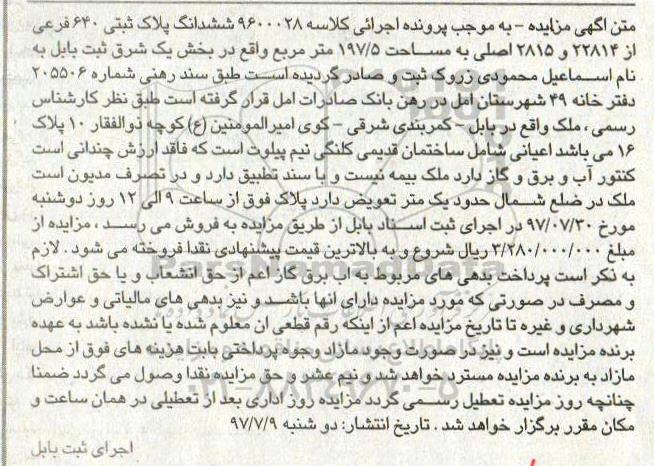 متن آگهی مزایده - به موجب پرونده اجرائی کلاسه ۹۶۰۰۰۲۸ ششدانگ پلاک ثبتی ۶۴۰ فرعی
از ۲۲۸۱۴ و ۲۸۱۵ اصلی به مساحت ۱۹۷/۵ متر مربع واقع در بخش یک شرق ثبت بابل به
نام اسماعیل محمودی زروک ثبت و صادر گردیده است طبق سند رهنی شماره ۲۰۵۵۰۶
دفتر خانه ۴۹ شهرستان امل در رهن بانک صادرات امل قرار گرفته است طبق نظر کارشناس
رسمی، ملک واقع در بابل - کمربندی شرقی - کوی امیرالمومنین (ع) کوچه ذوالفقار ۱۰ پلاک
۱۶ می باشد اعیانی شامل ساختمان قدیمی کلنگی نیم پیلوت است که فاقد ارزش چندانی است
کنتور آب و برق و گاز دارد ملک بیمه نیست و با سند تطبیق دارد و در تصرف مدیون است
ملک در ضلع شمال حدود یک متر تعویض دارد پلاک فوق از ساعت ۹ الی ۱۲ روز دوشنبه
مورخ ۹۷/۰۷/۳۰ در اجرای ثبت اسناد بابل از طریق مزایده به فروش می رسد، مزایده از
مبلغ ۳/۲۸۰/۰۰۰/۰۰۰ ریال شروع و به بالاترین قیمت پیشنهادی نقدا فروخته می شود. لازم
به ذکر است پرداخت بدهی های مربوط به آب برق گاز اعم از حق انشعاب و یا حق اشتراک
و مصرف در صورتی که مورد مزایده دارای انها باشد و نیز بدهی های مالیاتی و عوارض
شهرداری و غیره تا تاریخ مزایده اعم از اینکه رقم قطعی ان معلوم شده یا نشده باشد به عهده
برنده مزایده است و نیز در صورت وجود مازاد وجوه پرداختی بابت هزینه های فوق از محل
مازاد به برنده مزایده مسترد خواهد شد و نیم عشر و حق مزایده نقدا وصول می گردد ضمنا
چنانچه روز مزایده تعطیل رسمی گردد مزایده روز اداری بعد از تعطیلی در همان ساعت و
مکان مقرر برگزار خواهد شد. تاریخ انتشار: دو شنبه ۹۷/۷/۹
اجرای ثبت بابل